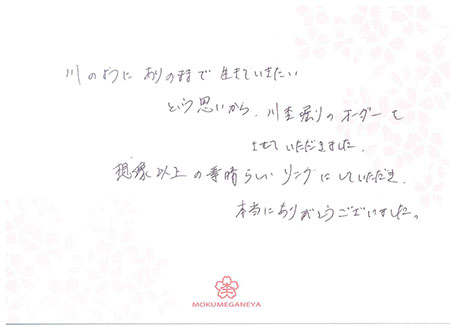 川のように ありのままで 生きていきたい
という思いから、川杢彫りのオーダーを
させていただきました。
想像以上の素晴らしいリングにしていただき、
本当にありがとうございました。
MOKUMEGANEYA